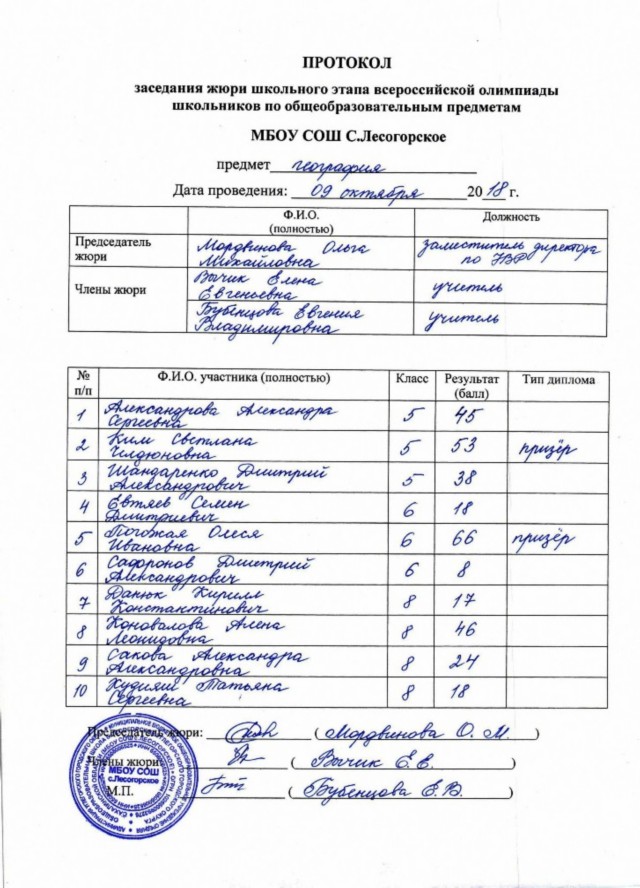 ПРОТОКОЛ
заседания жюри школьного этапа всероссийской олимпиады
школьников по общеобразовательным предметам
МБОУ СОШ С.Лесогорское
предмет география
Дата проведения: 09 октября 2018 г.
Ф.И.О. (полностью) Должность
Председатель жюри Мордвинова Ольга Михайловна заместитель директора по УВР
Члены жюри Вычик Елена Евгеньевна учитель
Бубенцова Евгения Владимировна учитель
№ п/п Ф.И.О. участника (полностью) Класс Результат (балл) Тип диплома
1 Александрова Александра Сергеевна 5 45
2 Ким Светлана 5 53 призёр
3 Шандаренко Дмитрий Александрович 5 38
4 Евтяев Семен Дмитриевич 6 18
5 Погожая Олеся Ивановна 6 66 призёр
6 Сафронов Дмитрий Александрович 6 8
7 Данюк Кирилл Константинович 8 17
8 Коновалова Алена Леонидовна 8 46
9 Сакова Александра Александровна 8 24
10 Худияш Татьяна Сергеевна 8 18
Председатель жюри: ( Мордвинова О. М. )
Члены жюри: ( Вычик Е.Е. )
М.П. ( Бубенцова Е.В. )
МБОУ СОШ
с.Лесогорское